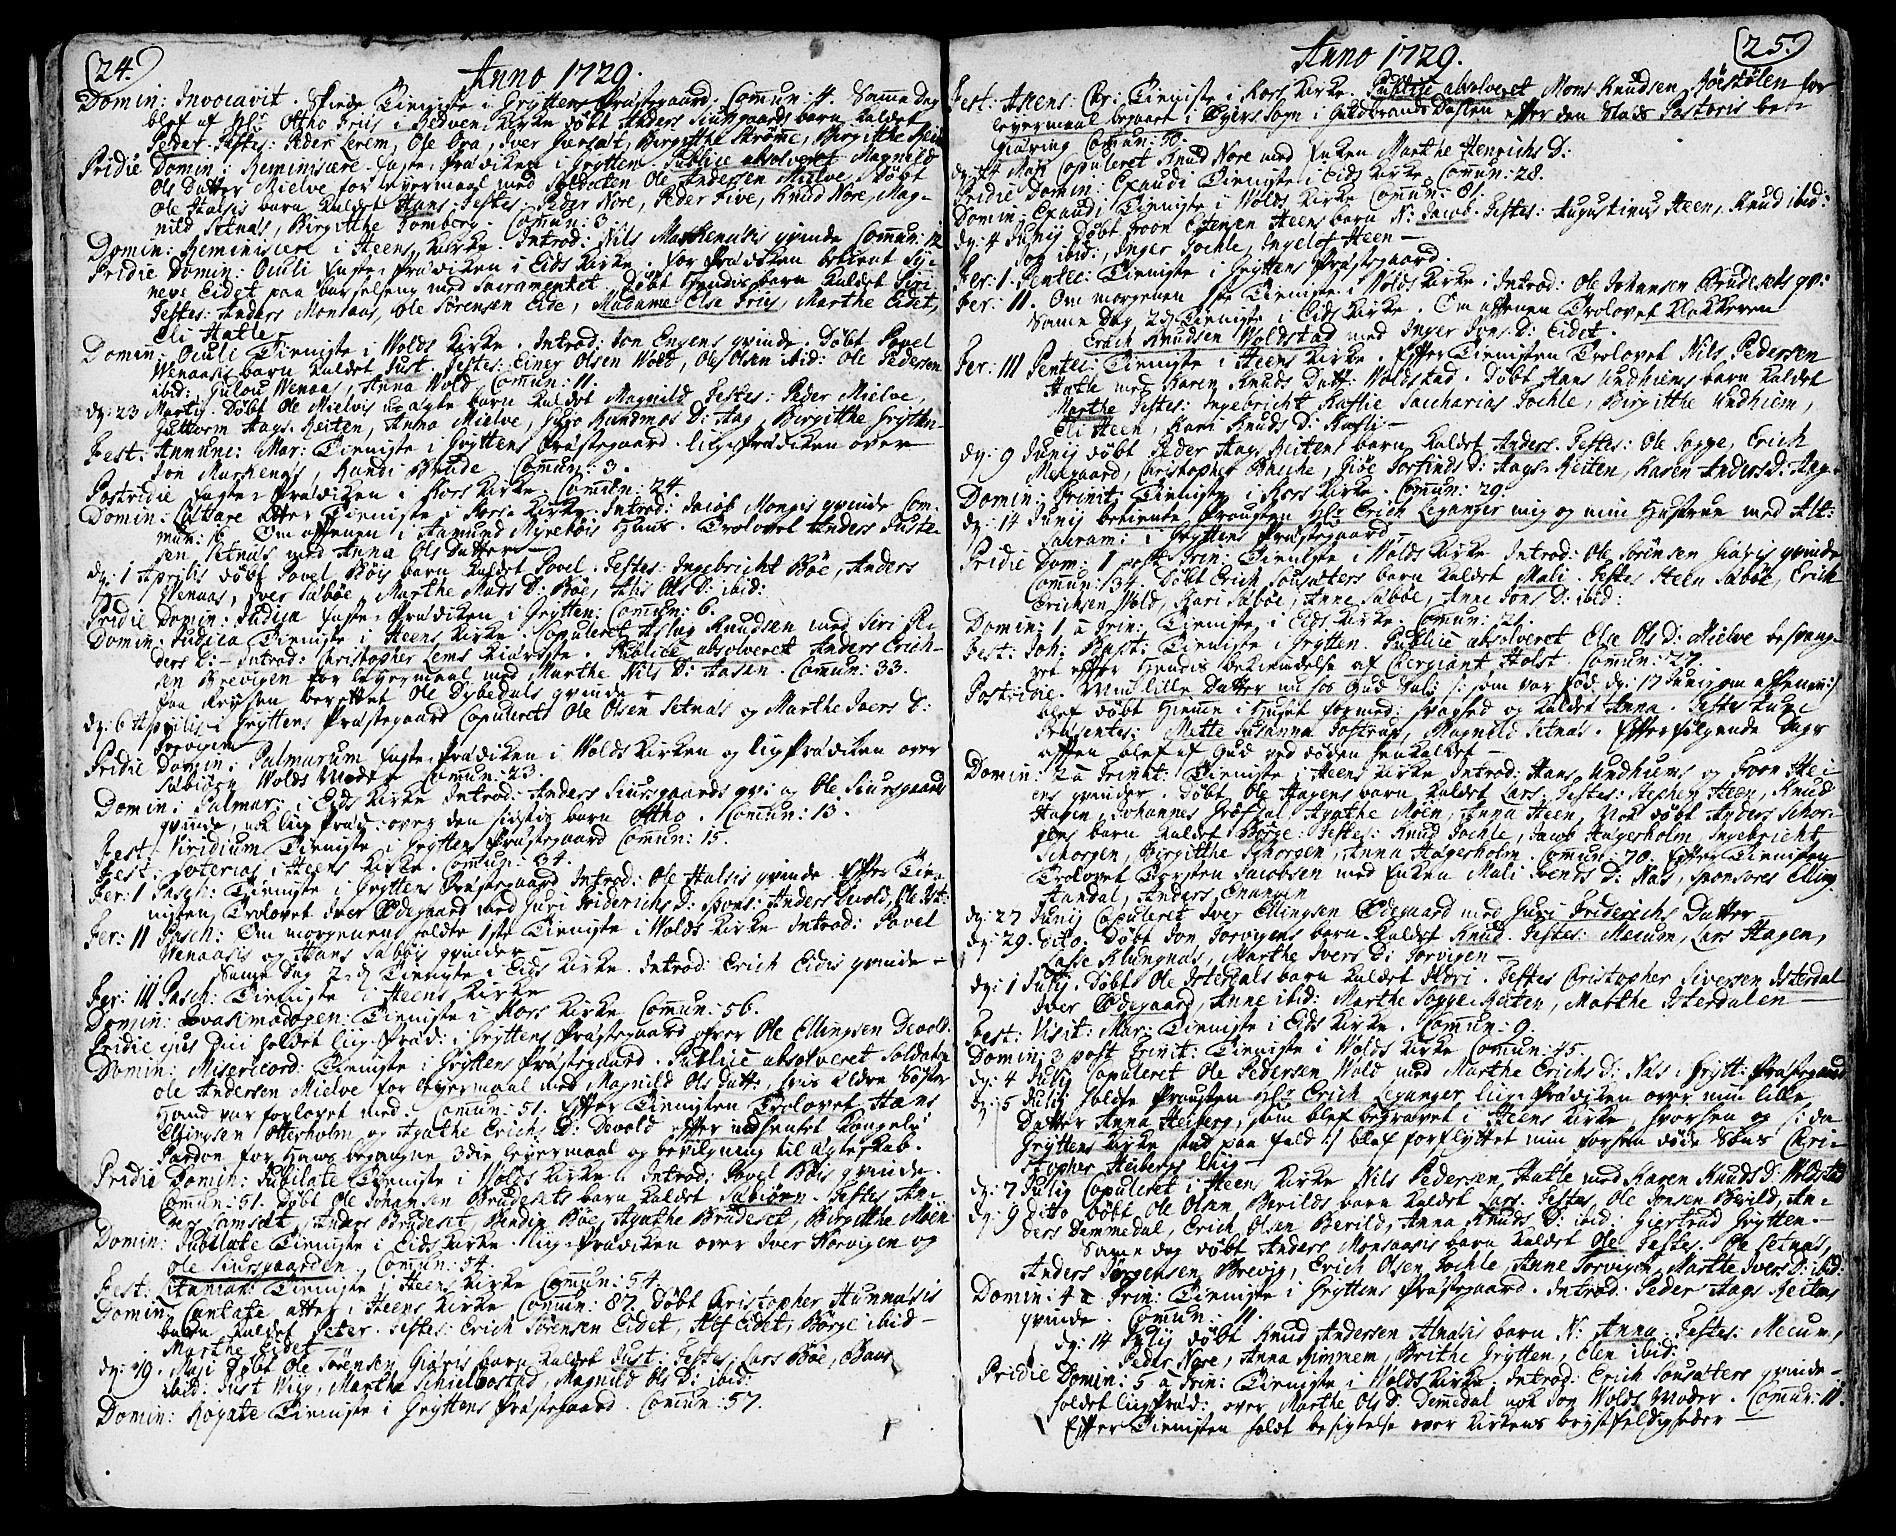 24.
Anno 1729.
Domin: Invocavit. Skeede Tieniste i Gryttens Præstegaard. Comun: 4. Samme dag
blef af Hr Otho Friis i Redvens Kirke døbt Anders Siursgaards barn kaldet
Peder. Testes: Peder Lerem, Ole Opa, Iver Giersæt, Birgitthe Strøme, Birgitthe
Pridie Domin: Reminiscere faste-Prædiken i Grytten. Publice absolveret Magnild
Ols Datter Mielve for Leyermaal med Soldaten Ole Andersen Mielve, Døbt
Ole Halsis barn kaldet Hans. Testes: Peder Nore, Peder Five, Knud Nore, Mag-
nild Setnæs, Birgitthe Tomberg. Comun: 3.
Domin: Reminiscere i Heens Kirke. Introd: Nils Marstenæsis qvinde Comun: 12
Pridie Domin: Oculi faste-Prædiken i Eids Kirke. For Prædiken betient Sy-
neve Eidet paa barselseng med Sacramentet. Døbt hendis barn kaldet Siri
Testes: Anders Monsaas, Ole Sørensen Eide, Madame Else Friis, Marthe Eidet,
Eli Hatle.
Domin: Oculi Tieniste i Wolds Kirke. Introd: Jon Engens qvinde. Døbt Povel
Wenaasis barn kaldet Just. Testes: Einer Olsen Wold, Ole Olsen ibid: Ole Pedersen
ibid: Gulou Wenaas, Anna Wold. Comun: 11.
dg: 23 Martij. Døbt Ole Mielvis u-ægte barn kaldet Magnild Testes: Peder Mielve,
Guttorm Aags-Reiten, Anna Mielve, Guro Amundmos D: Aag, Birgitthe Grytten-
Fest: Annunc: Mar: Tieniste i Gryttens Præstegaard. liig-Prædiken over
Jon Marstenæs, Randi Brude. Comun: 3.
Postridie faste-Prædiken i Kors Kirke Comun: 24.
Domin: Lætare atter Tieniste i Kors-Kirke. Introd: Jacob Monges qvinde Com-
mun: 6. Om aftenen i Aamund Myrebøis Huus. Trolovet Anders Juste-
sen Setnæs med Anna Ols Datter
dg: 1 Aprilis døbt Povel Bøis barn kaldet Povel. Testes: Ingebricht Bøe, Anders
Wenaas, Iver Sæbøe, Marthe Mads D: Bøe, Alis Ols D: ibid:
Pridie Domin: Judica faste-Prædiken i Grytten. Comun: 6.
Domin: Judica Tieniste i Heens Kirke. Copuleret Aslag Knudsen med Siri Pe-
ders D:- Introd: Christopher Lems Kiæreste. Publice absolveret Anders Erich-
sen Brevigen for Leyermaal med Marthe Nils D: Aasen. Comun: 33.
Paa Reysen berettet Ole Dybedals qvinde
dg: 6 Aprilis i Gryttens Præstegaard Copuleret Ole Olsen Setnæs og Marthe Ivers D:
Torvigen
Pridie Domin: Palmarum faste-Prædiken i Wolds Kirken og liig-Prædiken over
Sæbiørn Wolds Moder Comun: 23.
Domin: Palmar: i Eids Kirke Introd: Anders Siursgaards qvi: og Ole Siursgaards
qvinde, nok liig-Præd: over den sidstis barn Otho. Comun: 13.
Fest: Viridium Tieniste i Grytten Præstegaard Comun: 15.
Fest: Soterias i Heens Kirke. Comun: 34.
Fer: 1 Pasch: Tieniste i Gryttens Præstegaard Introd: Ole Halsis qvinde. Efter Tie-
nisten, Trolovet Iver Ødegaard med Guri Friderichs D: Spons: Anders Devold, Ole Ist:
Fer: 11 Pasch: Om morgenen holdte 1ste Tieniste i Wolds Kirke Introd: Povel
Wenaasis og Hans Sæbøis qvinder
Samme dag 2d Tieniste i Eids Kirke. Introd: Erich Eidis qvinde
Fer: 111 Pasch: Tieniste i Heens Kirke
Domin: Qvasimodogen: Tieniste i Kors Kirke Comun: 56.
Pridie ejus Diei holdet liig-Præd: i Gryttens Præstegaard over Ole Ellingsen Devold.
Domin: Misericord: Tieniste i Gryttens Præstegaard. Publice absolveret Soldaten
Ole Andersen Mielve for Leyermaal med Magnild Ols Datter, hvis ældre Søster
hand var forlovet med. Comun: 51. Efter Tienisten Trolovet Hans
Ellingsen Otterholm og Agathe Erichs D: Devold efter indhentet Kongelig
Pardon for Hans begangne 3die Leyermaal og bevilgning til Ægteskab.
Pridie Domin: Jubilate Tieniste i Wolds Kirke. Introd: Povel Bøis qvinde.
Comun: 51. Døbt Ole Johansen Brudesets barn kaldet Sæbiørn. Testes An-
ders Samsæt, Anders Brudeset, Bendix Bøe, Agathe Brudeset, Birgitthe Moen.
Domin: Jubilate Tieniste i Eids Kirke. liig-Prædiken over Iver Norvigen og
Ole Siursgaarden. Comun: 54.
Fest: Litaniar: Tieniste i Heens Kirke Comun: 54.
Domin: Cantate atter i Heens Kirke Comun: 87. Døbt Christopher Hunnæsis
barn kaldet Peter. Testes: Erich Sørensen Eidet, Alf Eidet, Børge ibid-
Marthe Eidet
dg: 19. Maji Døbt Ole Sørensen Giæris barn kaldet Just. Testes: Lars Bøe, Baar
ibid: Just Wiig, Marthe Schielbostad, Magnild Ols D: ibid:
Domin: Rogate Tieniste i Gryttens Præstegaard. Comun: 57.
25.
Anno 1729.
Fest: Ascens: Chr: Tieniste i Kors Kirke. Publice absolveret Mons Knudsen Høestølen for
Leyermaal begaaet i Sogn i Guldbrands Dalen efter den Stæds Pastoris be-
giæring Comun: 50.
dg: 24 Maji Copuleret Knud Nore med Enken Marthe Henrichs D:
Pridie Domin: Exaudi Tieniste i Eids Kirke Comun: 28.
Domin: Exaudi Tieniste i Wolds Kirke Comun: 81.
dg: 4 Junij Døbt Joon Estensen Heens barn N: Jacob. Testes: Augustinus Heen, Knud ibid:
og ibid: Inger Sochle, Ingelof Heen
Fer: 1 Pentec: Tieniste i Gryttens Præstegaard.
Fer: 11. Om morgenen 1ste Tieniste i Wolds Kirke. Introd: Ole Johansen Brudesets qv:
Samme Dag 2d Tieniste i Eids Kirke. Om aftenen Trolovet Klokkeren
Erich Knudsen Woldstad med Inger Jons D: Eidet.
Fer: 111 Pentec: Tieniste i Heens Kirke. Efter Tienisten Trolovet Nils Pedersen
Hatle med Karen Knuds Datt: Woldstad. Døbt Hans Undhiems barn kaldet
Marthe Testes: Ingebricht Kaflie Sacharias Sochle, Birgitthe Undhiem,
Eli Heen, Kari Knuds D: Kafli
dg: 9 Junij døbt Peder Aags-Reitens barn kaldet Anders. Testes: Ole Sogge, Erich
Melgaard, Christopher Bheche, Giøe Torfinds D: Aags-Reiten, Karen Anders D: Aag-
Domin: Trinit: Tieniste i Kors Kirke. Comun: 29.
dg: 14 Junij betiente Prousten Hr Erich Leganger mig og min Hustrue med Alt:
Sacram: i Gryttens Præstegaard
Pridie Dom: 1 post Trin: Tieniste i Wolds Kirke Introd: Ole Sørensen Giæris qvinde
Comun: 34. Døbt Erich Sousæters barn kaldet Mali. Testes Steen Sæbøe, Erich
Erichsen Wold, Kari Sæbøe, Anne Sæbøe, Anne Jons D: ibid:
Domin: 1 à Trin: Tieniste i Eids Kirke Comun: 21.
Fest: Joh: Bapt: Tieniste i Grytten. Publice absolveret Else Ols D: Mielve besvang-
ret efter hendis bekiendelse af Sergiant Holst. Comun: 27.
Postridie. Min lille Datter nu hos Gud Sal: /: som var fød dg: 17 Junij om aftenen:/
blef døbt hiemme i Huset formed: svaghed og kaldet Anna. Testes tunc
Præsentes: Mette Susanna Tostrup, Magnild Setnæs. Efterfølgende Dags
aften blef af Gud ved døden henkaldet
Domin: 2 à Trinit: Tieniste i Heens Kirke Introd: Hans Undhiems og Joon He-
ens qvinder. Døbt Ole Hagens barn kaldet Lars. Testes: Stephen Heen, Knud
Hagen, Johannes Grøfdal, Agathe Moen, Anna Heen, Nok døbt Anders Schor-
gens barn kaldet Børge: Testes: Knud Sochle, Jacob Hagerholm, Ingebricht
Schorgen, Birgitthe Schorgen, Anna Hagerholm. Comun: 70. Efter Tienisten
Trolovet Torsten Jacobsen med Enken Mali Svends D: Næs, Sponsores Elling
Handal, Anders Enangen
dg: 27 Junij Copuleret Iver Ellingsen Ødegaard med Guri Friderichs Datter
dg: 29. dito. Døbt Jon Torvigens barn kaldet Knud. Testes: Mecum, Lars Hagen,
Lasse Klungnæs, Marthe Ivers D: Torvigen
dg: 1 Julij. Døbt Ole Isterdals barn kaldet Mari. Testes Cristopher Siversen Isterdal
Iver Ødegaard, Anne ibid: Marthe Sogge-Reiten, Marthe Isterdalen
Fest: Visit: Mar: Tieniste i Eids Kirke. Comun: 9.
Domin: 3 post Trinit: Tieniste i Wolds Kirke Comun: 45.
dg: 4 Julij Copuleret Ole Pedersen Wold med Marthe Erichs D: Næs i Grytt: Præstegaard
dg: 5 Julij holdte Prousten Hr Erich Leganger liig-Prædiken over min lille
Datter Anna Heiberg, som blef begravet i Heens Kirke, hvorhen og /: da
Gryttens Kirke stod paa fald :/ blef forflyttet min forhen døde Søns Chri-
stopher Heibergs liig
dg: 7 Julij Copuleret i Heens Kirke Nils Pedersen Hatle med Karen Knuds D: Woldstad
dg: 9 ditto Døbt Ole Olsen Berilds barn kaldet Lars. Testes, Ole Jonsen Berild, An-
ders Demmedal, Erich Olsen Berild, Anna Knuds D: ibid: Giertrud Grytten.
Samme dag døbt Anders Monsaasis barn kaldet Ole Testes: Ole Setnæs,
Anders Jørgensen, Brevig, Erich Olsen Sochle, Anne Torvigen, Marthe Ivers D: ibid:
Domin: 4 à Trin: Tieniste i Gryttens Præstegaard. Introd: Peder Aags Reitens
qvinde. Comun: 11.
dg: 14 Julij døbt Knud Andersen Alnæsis barn N: Anna. Testes: Mecum,
Peder Nore, Anna Rimmem, Brithe Grytten, Elen ibid:
Pridie Domin: 5 à Trin: Tieniste i Wolds Kirke. Introd: Erich Sousæters qvinde-
holdet liig-Præd: over Marthe Ols D: Demedal nok Jon Wolds Moder. Comun: 11.
Efter Tienisten holdt besigtelse over Kirkens brøstfeldigheder